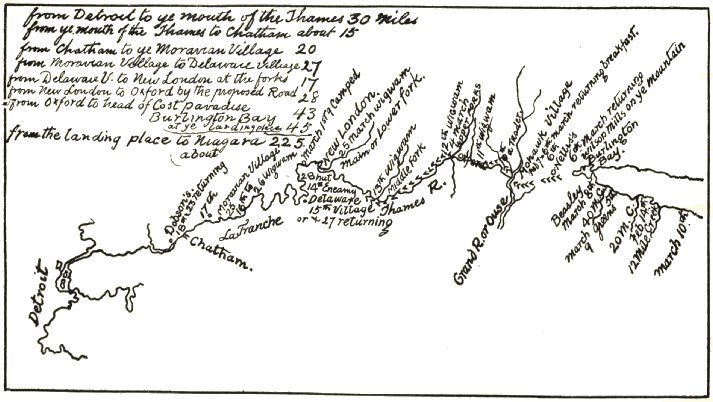 from Detroit to ye mouth of the Thames 30 miles
from ye mouth of the Thames to Chatham about 15
from Chatham to ye Moravian Village 20
from Moravian Village to Delaware Village 27
from Delaware V. to New London at the forks 17
from New London to Oxford by the proposed Road 28
from Oxford to head of Cost Paradise 43
Burlington Bay
at ye landing place 45
from the landing place to Niagara 225
about
Detroit
Dolsen's
18th 23 returning
17th
Chatham.
Moravian Village
26 wigwam
La Tranche
March 1st 9 Camped
New London.
25 march wigwam
Main or Lower fork.
28 hut
14th Encamp
Delaware
15th Village
or + 27 returning
13th wigwam
Middle fork
Thames R.
12th wigwam
5 march
upper
11th wigwam
Grand R. or Ouse
Mohawk Village
march returning breakfast.
6th march returning
wilson mills on ye mountain
Burlington
Bay.
Beasley
March 8th
march
40 M. C.
20 M. C.
12 Mile Creek
march 10th